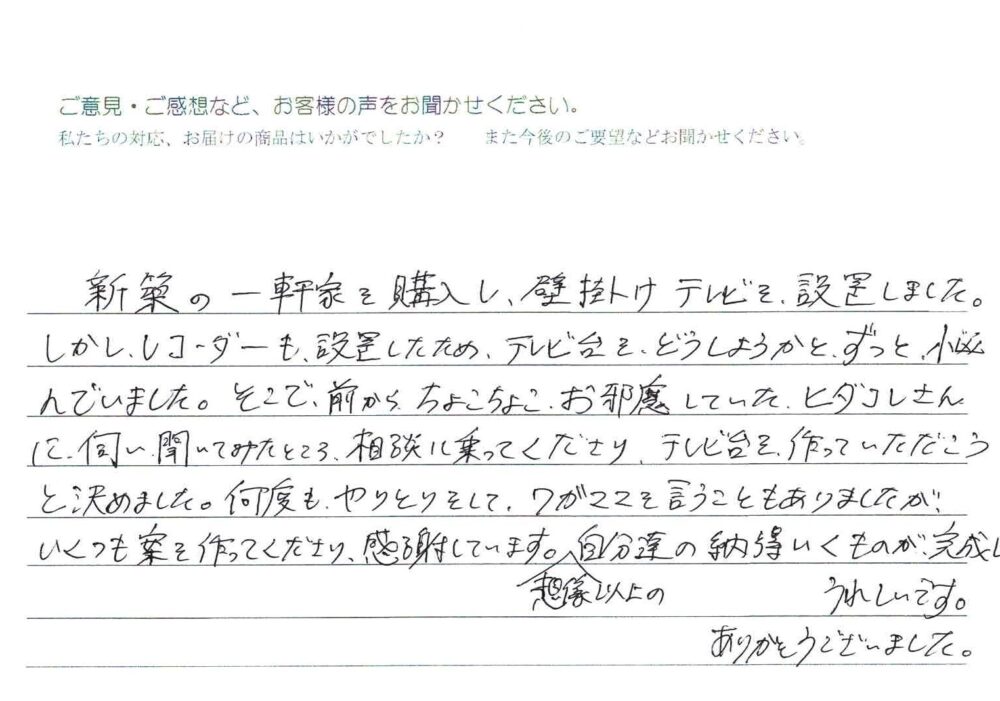 ご意見・ご感想など、お客様の声をお聞かせください。
私たちの対応、お届けの商品はいかがでしたか？　　また今後のご要望などお聞かせください。
新築の一軒家を購入し、壁掛けテレビを、設置しました。
しかし、レコーダーも、設置したため、テレビ台を、どうしようかと、ずっと、小悩
んでいました。そこで、前から、ちょこちょこ、お邪魔していた、ヒダコレさん
に、伺い、聞いてみたところ、相談に乗ってくださり、テレビ台を、作っていただこう
と決めました。何度も、やりとりをして、ワガママを言うこともありましたが、
いくつも案を作ってくださり、感謝しています。自分達の納得いくものが、完成し
想像以上の　うれしいです。
ありがとうございました。